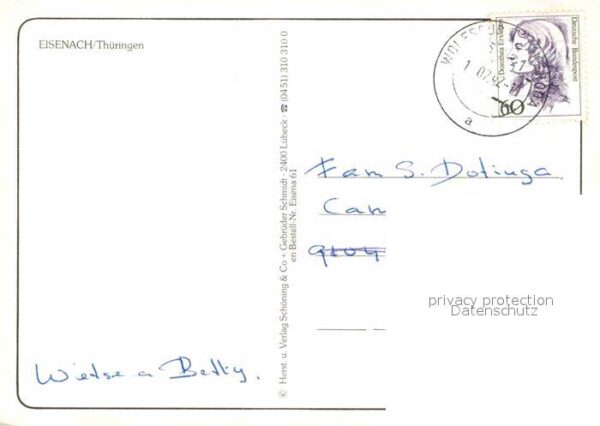 EISENACH/Thüringen
© Herst. u. Verlag Schöning & Co + Gebrüder Schmidt · 2400 Lübeck · ☎ (04 51) 310 310 0
en Bestell-Nr. Eisena 61
Deutsche Bundespost
Dorothea Erxleben
60
1.07.92-17
a
Fam S. Dotinga
Cam
9804
privacy protection
Datenschutz
Wietse a Betty.